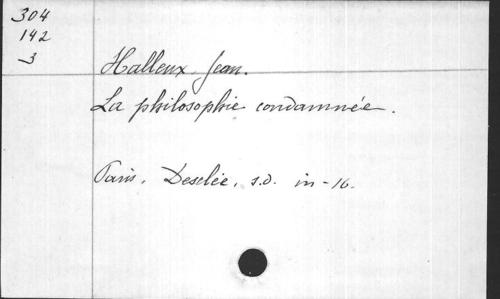 304
142
-3
Halleux, Jean.
La philosophie condamnée.
Paris, Desclée, s.d. in-16.